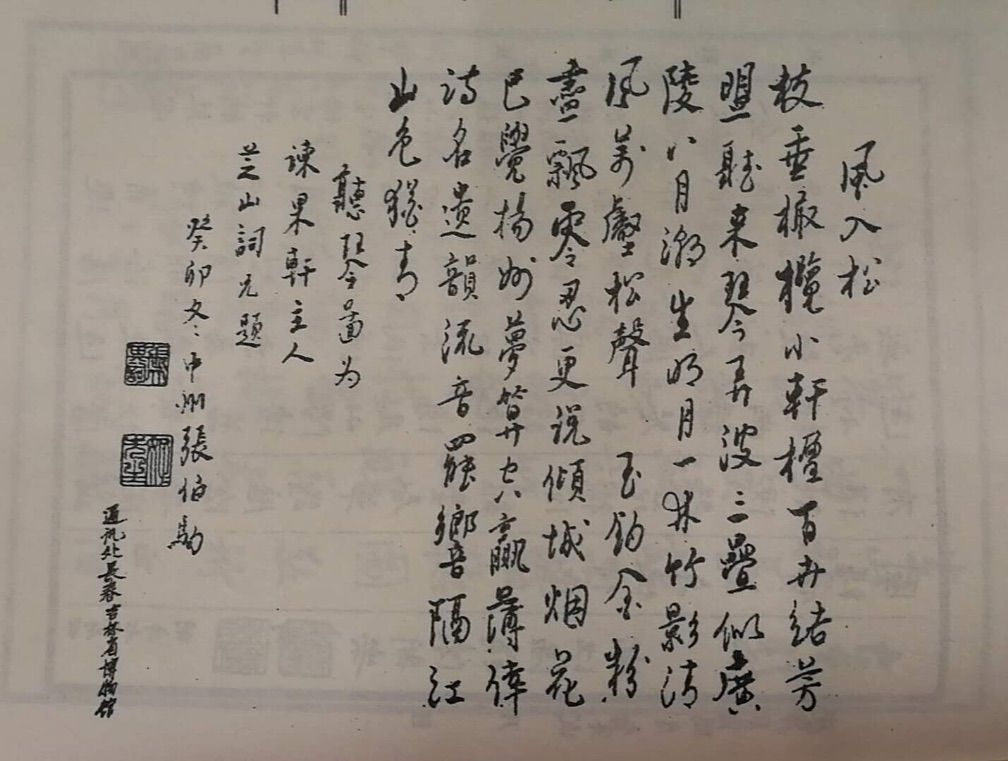 風入松
枝垂橄欖小軒楹百卉結芳
盟聽來琴弄波三疊似廣
陵八月潮生明月一林竹影清
風萬壑松聲　玉鈎金粉
盡飄零忍更説傾城烟花
已覺揚州夢算只贏薄倖
詩名遺韻流音罷響隔江
山色猶青
聽琴圖为
諫果軒主人
芝山詞兄題
癸卯冬中州張伯駒
通訊处長春吉林省博物館